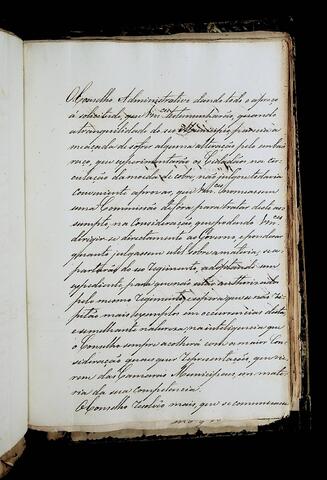 O Conselho Administrativo dando todo o apreço
á solicitude, que Vm.ces testemunharão, quando
a tranquilidade do seu Municipio parecia a
meaçada de sofrer alguma alteração pelo emba
raço, que esperimentarão os Cidadãos na cir
culação da moeda de cobre, não julga todavia
conveniente aprovar, que Vm.ces nomeassem
uma Comissão de fóra para tratar deste as
sumpto, na Consideração que podendo Vm.ces
dirigir-se directamente ao Governo, e ponderar
quanto julgassem util sobre a materia, se a
partarão do seu regimento, adoptando um
expediente, para que não estão authorisados
pelo mesmo regimento, e espera que se não re
pitão mais exemplos em occurrencias desta
e semelhante natureza, na inteligencia que
o Conselho sempre acolherá com a maior Con
sideração quaesquer representação, que vi
erem das Camaras Municipaes, em mate
ria da sua competencia.
O Conselho resolveo mais, que se comunicasse